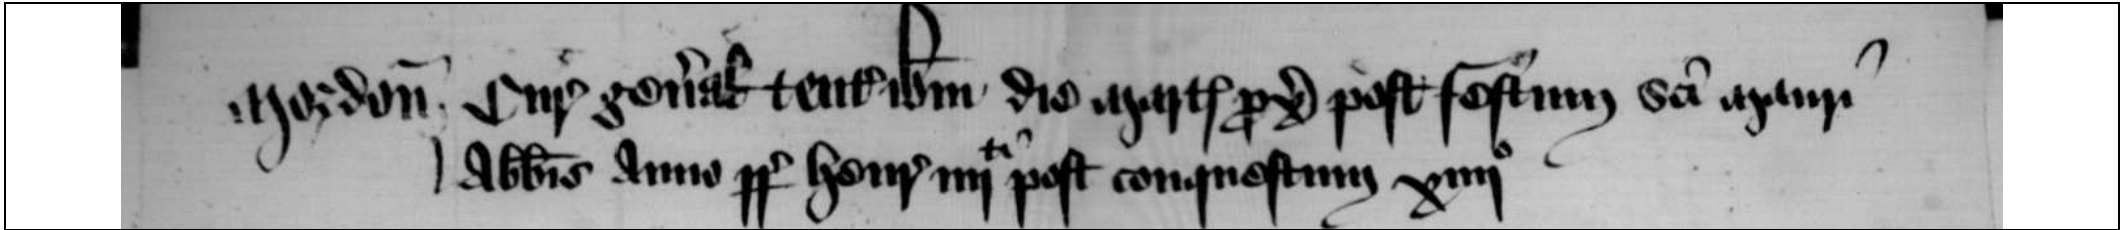 Mordon̄ Cur' gen'al' tent' ib̄m die Martis prox' post festum Sc̄i Mauri
Abb̄is Anno rr' Henr' iiijti post conquestum xiiijo